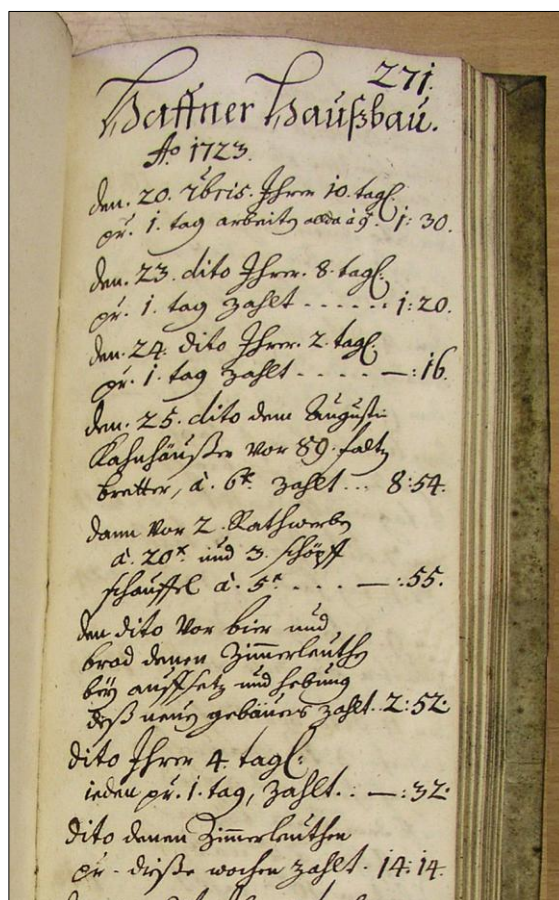 271.
Haffner Haußbau.
Ao 1723.
den. 20. 7bris. Ihrer 10. tagl.
pr. 1. tag arbeith à 9 1: 30.
den. 23. dito Ihrer. 8. tagl.
pr. 1. tag zahlt - - - - - - 1: 20.
den. 24. dito Ihrer. 2. tagl.
pr. 1. tag zahlt - - - - —: 16.
den. 25. dito dem Augusti
Kahnhäußer vor 89. faltz
bretter, à. 6x. zahlt ... 8: 54.
dann vor 2. 
à. 20x. und 3. schöpf
schauffel à. 5x. - - - —: 55.
den dito vor bier und
brod denen Zimmerleuthe
bey auffsetz und hebung
deß neuen gebäues zahlt.. 2: 52.
dito Ihrer 4. tagl:
ieden pr. 1. tag, zahlt. : —: 32.
dito denen Zimmerleuthen
pr. dieße wochen zahlt. 14: 14.